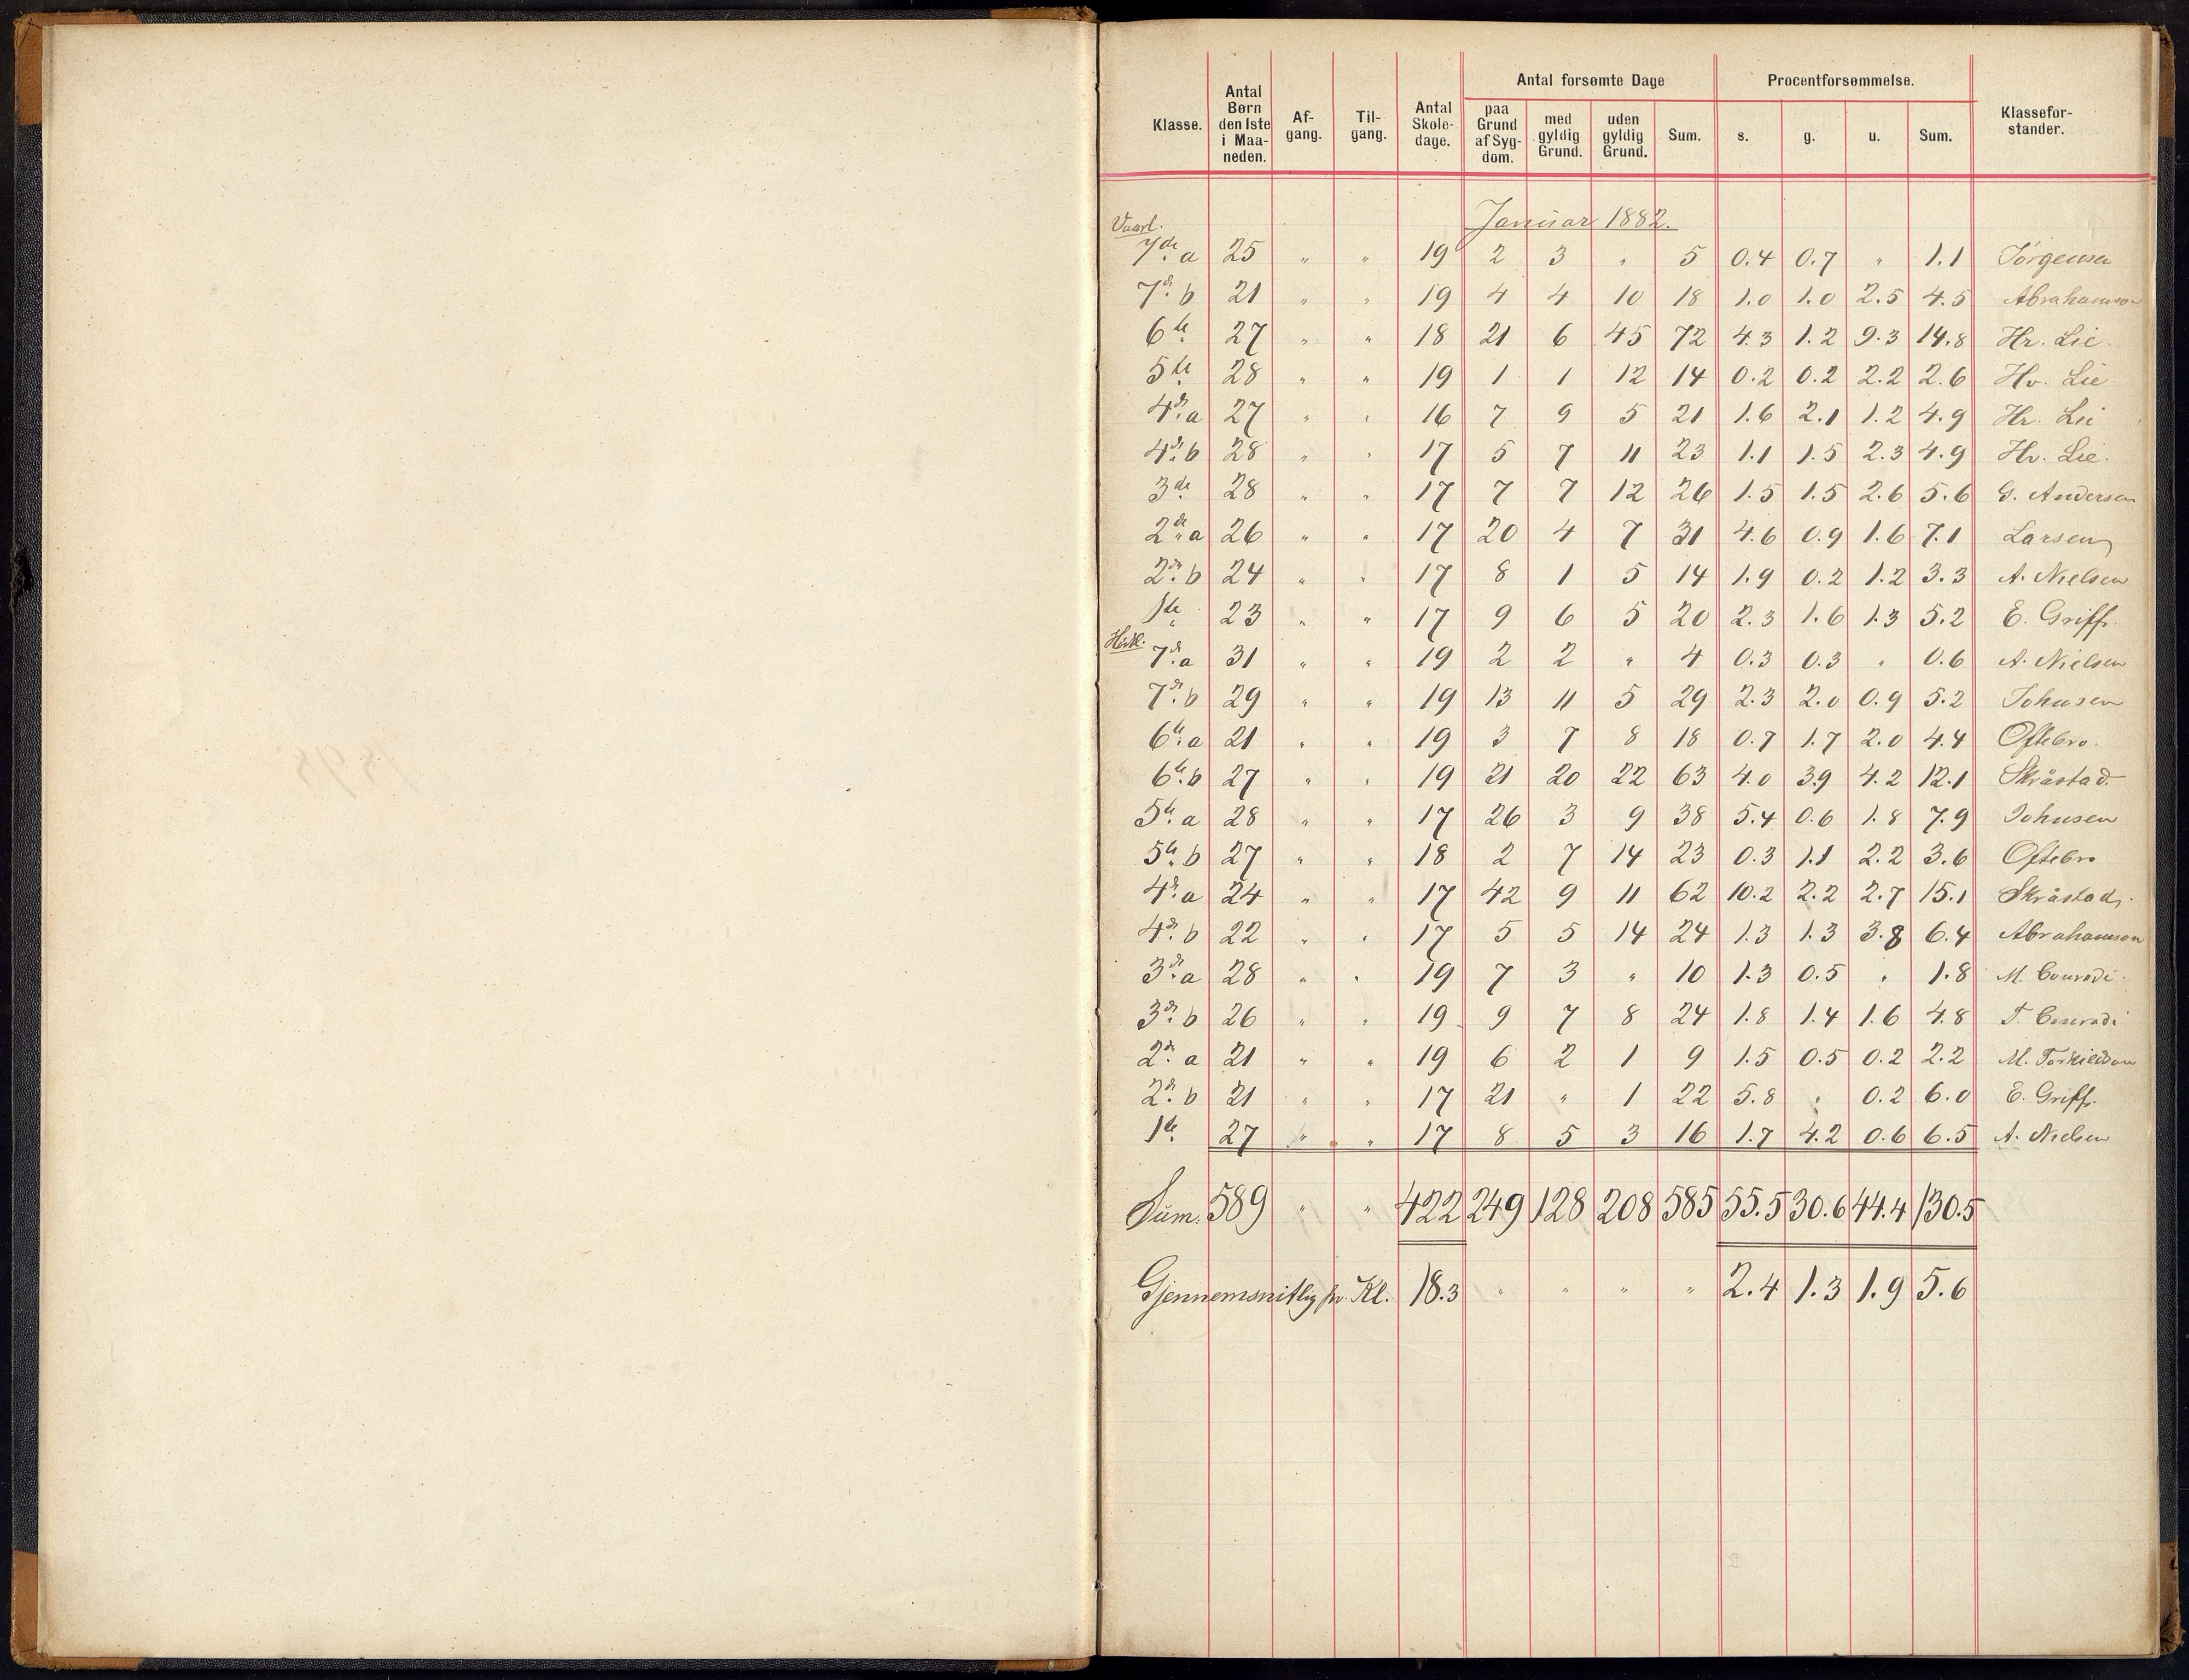 Klasse. Antal Børn den 1ste i Maaneden. Afgang. Tilgang. Antal Skoledage. Antal forsømte Dage paa Grund af Sygdom. med gyldig Grund. uden gyldig Grund. Sum. Procentforsømmelse. s. g. u. Sum. Klasseforstander.
Januar 1882.
7de a 25 " " 19 2 3 " 5 0.4 0.7 " 1.1 Jörgensen
7d. b 21 " " 19 4 4 10 18 1.0 1.0 2.5 4.5 Abrahamson
6te 27 " " 18 21 6 45 72 4.3 1.2 9.3 14.8 Hr. Lie.
5te 28 " " 19 1 1 12 14 0.2 0.2 2.2 2.6 Hr. Lie
4de a 27 " " 16 7 9 5 21 1.6 2.1 1.2 4.9 Hr. Lie
4de b 28 " " 17 5 7 11 23 1.1 1.5 2.3 4.9 Hr. Lie.
3de 28 " " 17 7 7 12 26 1.5 1.5 2.6 5.6 G. Andersen
2de a 26 " " 17 20 4 7 31 4.6 0.9 1.6 7.1 Larsen
2de b 24 " " 17 8 1 5 14 1.9 0.2 1.2 3.3 A. Nielsen
1ste 23 " " 17 9 6 5 20 2.3 1.6 1.3 5.2 E. Griff.
7de a 31 " " 19 2 2 " 4 0.3 0.3 " 0.6 A. Nielsen
7de b 29 " " 19 13 11 5 29 2.3 2.0 0.9 5.2 Johnsen
6te a 21 " " 19 3 7 8 18 0.7 1.7 2.0 4.4 Oftebro.
6te b 27 " " 19 21 20 22 63 4.0 3.9 4.2 12.1 Skråstad.
5te a 28 " " 17 26 3 9 38 5.4 0.6 1.8 7.9 Johnsen
5te b 27 " " 18 2 7 14 23 0.3 1.1 2.2 3.6 Oftebro
4de a 24 " " 17 42 9 11 62 10.2 2.2 2.7 15.1 Skråstad.
4de b 22 " " 17 5 5 14 24 1.3 1.3 3.8 6.4 Abrahamson
3de a 28 " " 19 7 3 " 10 1.3 0.5 " 1.8 M. Conradi.
3de b 26 " " 19 9 7 8 24 1.8 1.4 1.6 4.8 T. Conradi
2de a 21 " " 19 6 2 1 9 1.5 0.5 0.2 2.2 M. Torkildson
2de b 21 " " 17 21 " 1 22 5.8 " 0.2 6.0 E. Griff.
1ste 27 " " 17 8 5 3 16 1.7 4.2 0.6 6.5 A. Nielsen
Sum. 589 " " 422 249 128 208 585 55.5 30.6 44.4 130.5
Gjennemsnitlig pr. Kl. 18.3 " " " " 2.4 1.3 1.9 5.6